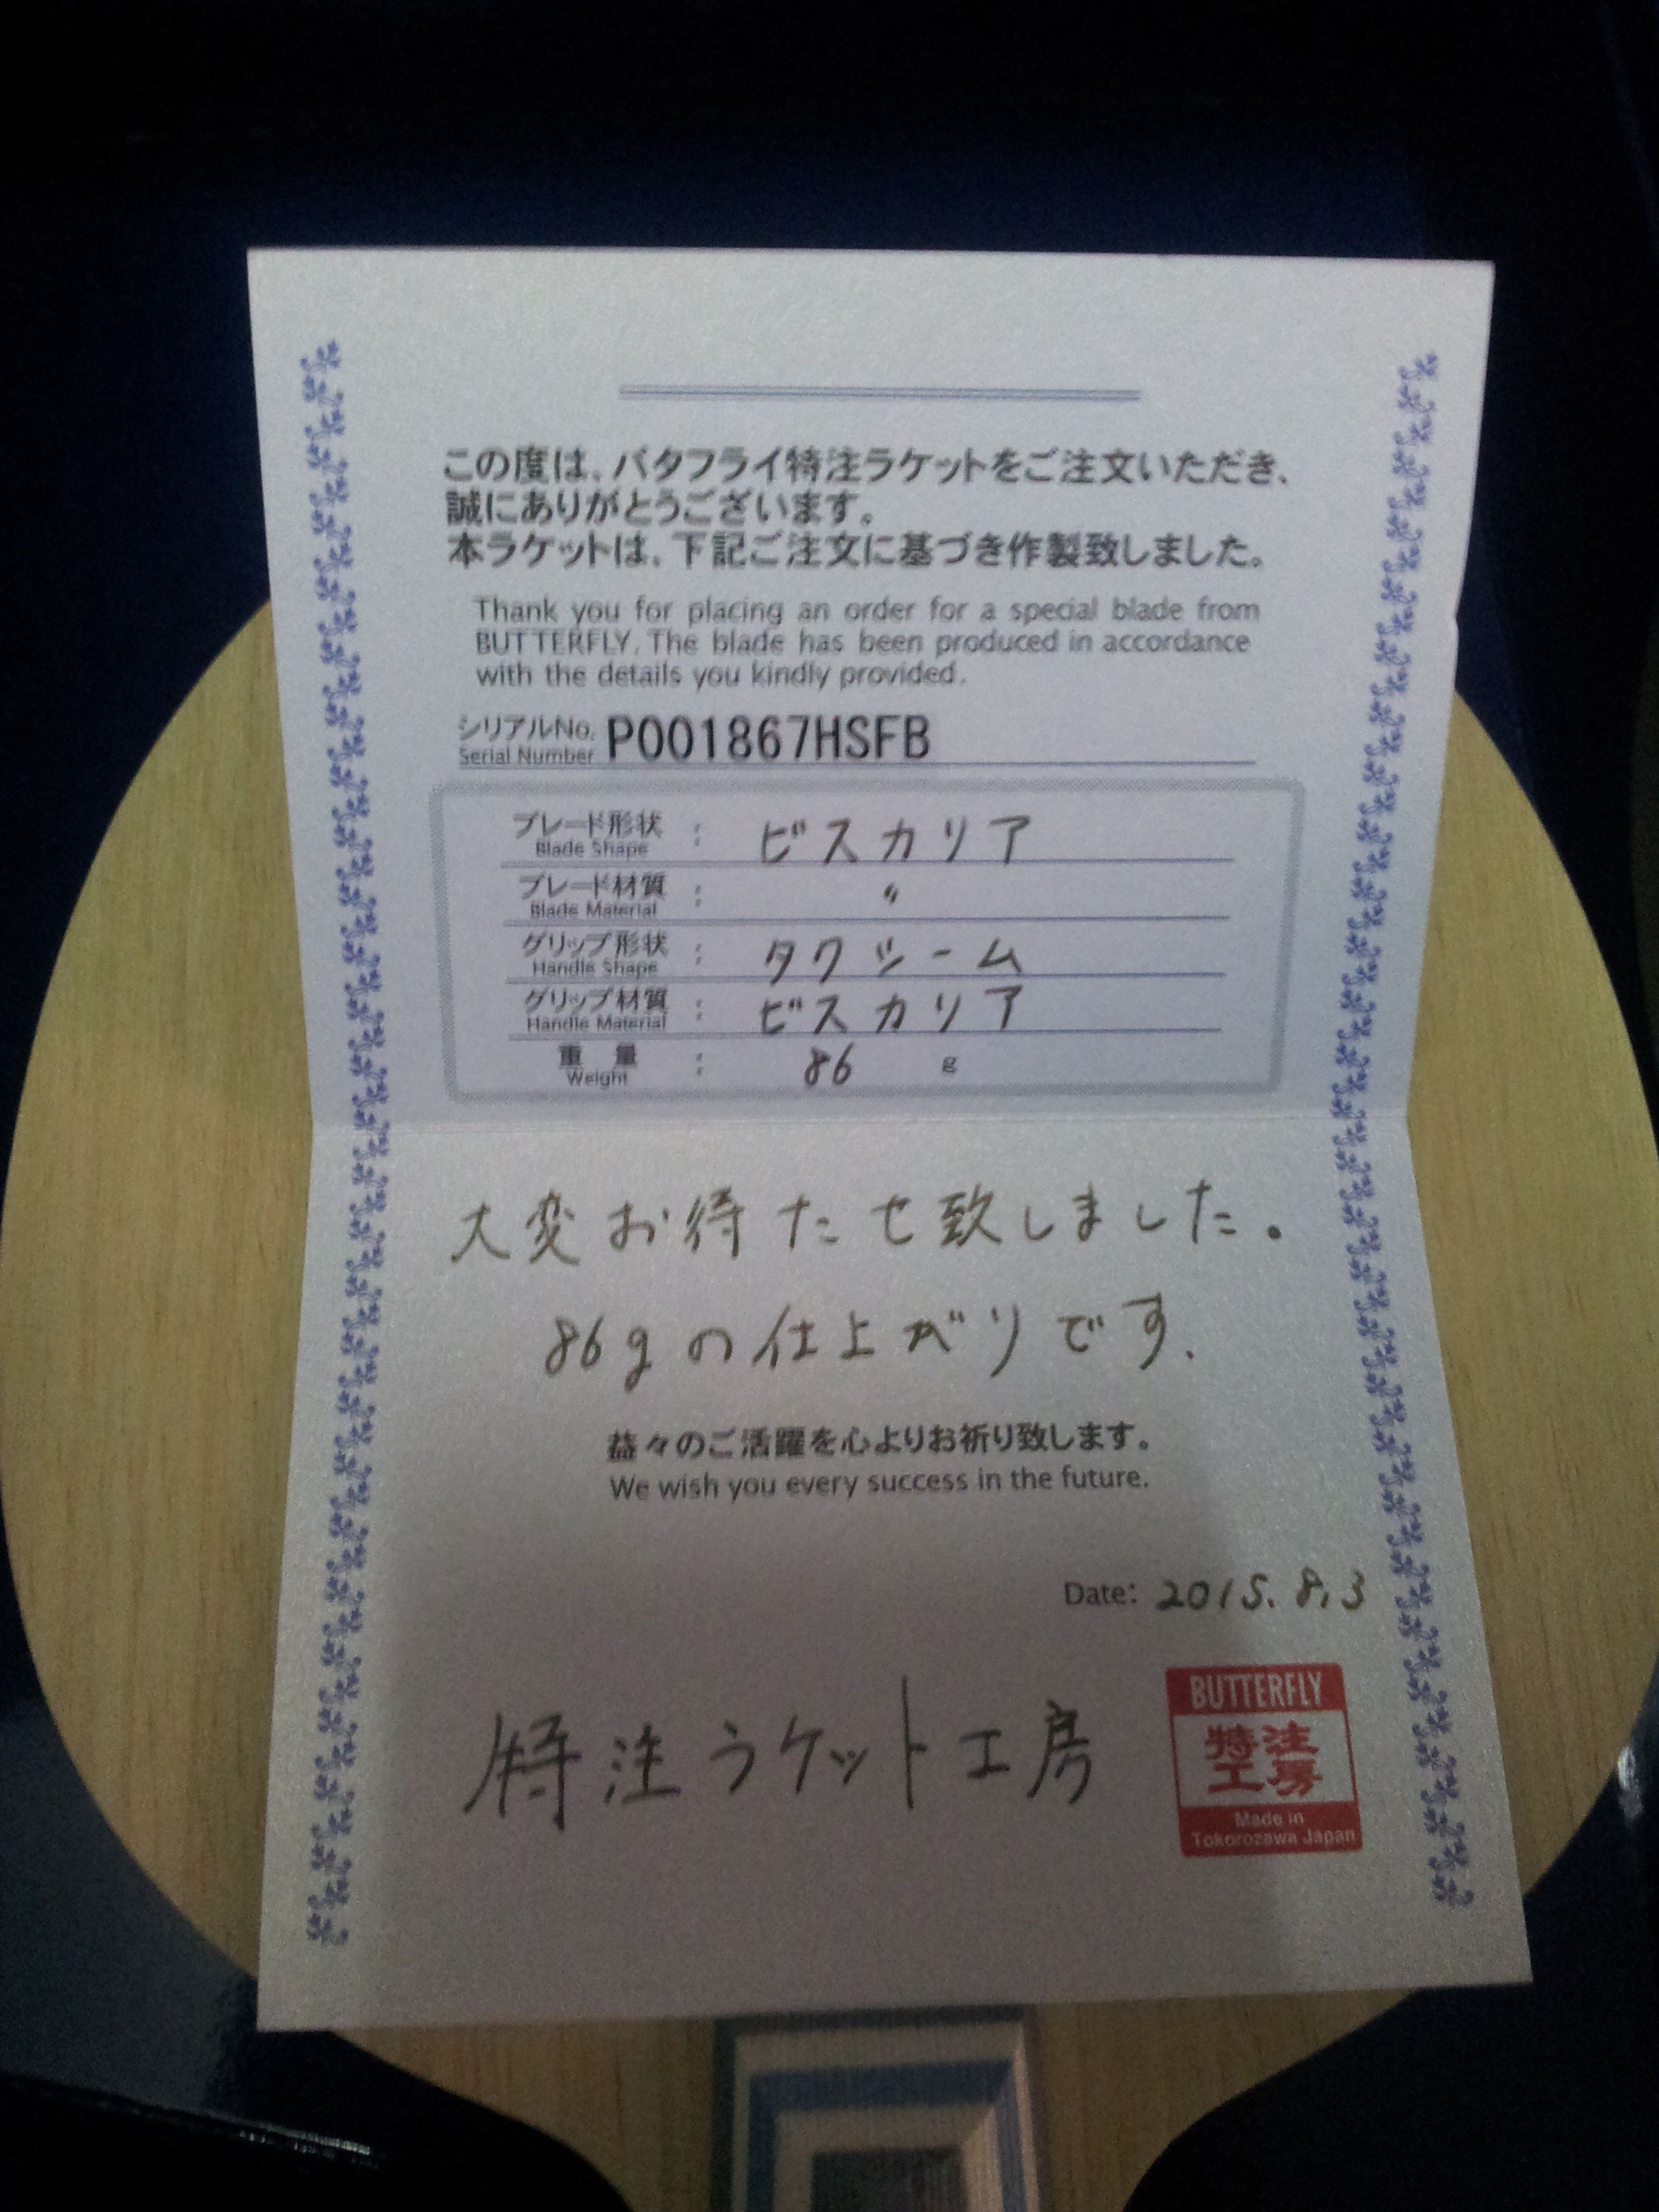 この度は、バタフライ特注ラケットをご注文いただき、
誠にありがとうございます。
本ラケットは、下記ご注文に基づき作製致しました。
Thank you for placing an order for a special blade from
BUTTERFLY. The blade has been produced in accordance
with the details you kindly provided.
シリアルNo. P001867HSFB
Serial Number
ブレード形状 : ビスカリア
Blade Shape
ブレード材質 : 〃
Blade Material
グリップ形状 : タクシーム
Handle Shape
グリップ材質 : ビスカリア
Handle Material
重量 : 86 g
Weight
大変お待たせ致しました。
86gの仕上がりです.
益々のご活躍を心よりお祈り致します。
We wish you every success in the future.
Date: 2015.8.3
特注ラケット工房
BUTTERFLY
特注
工房
Made in
Tokorozawa Japan